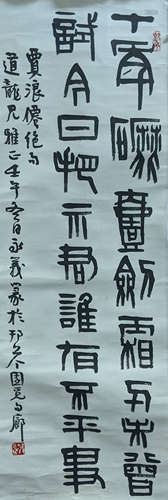 十年磨壹劍霜刃未曾
試今日把示君誰有不平事
賈浪僊絕句
道龍兄雅正壬午冬日永義篆於邗上个園覓句廊